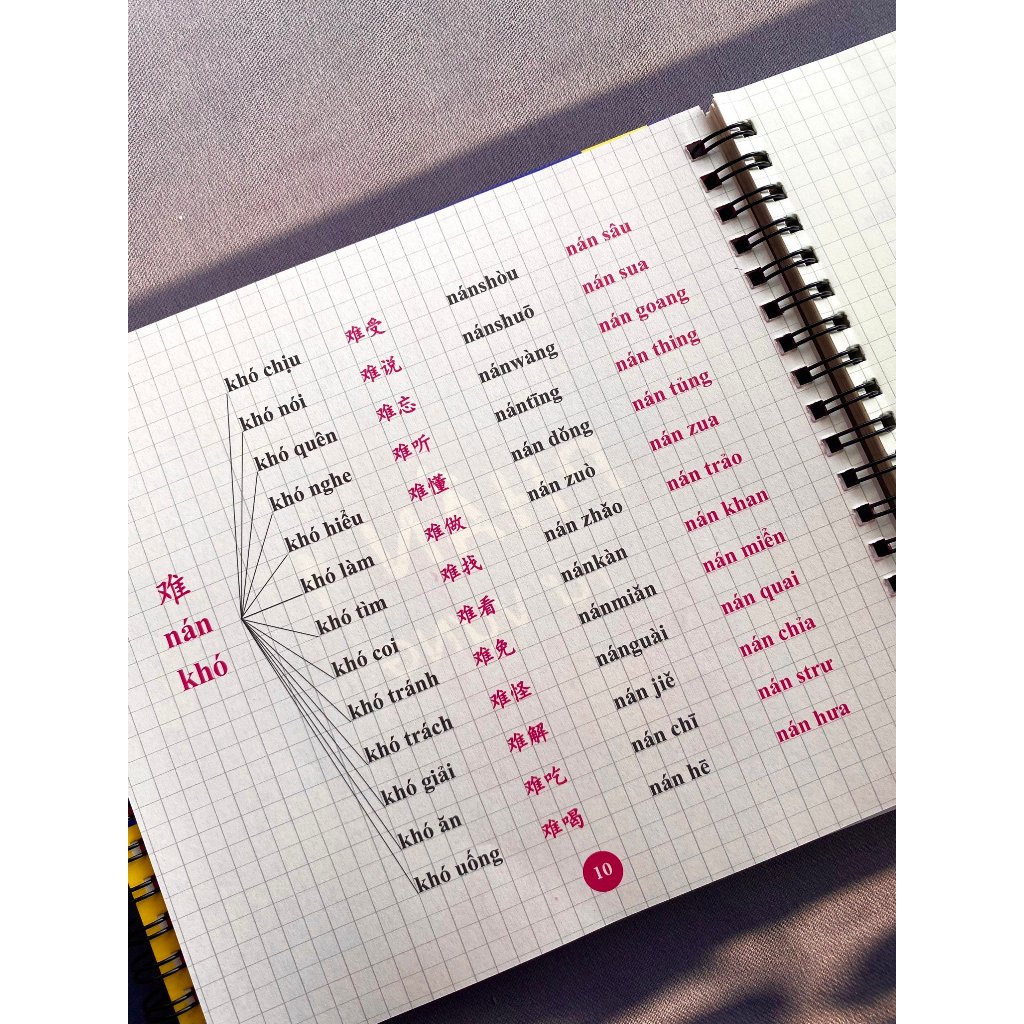 难
nán
khó
khó chịu 难受 nánshòu nán sâu
khó nói 难说 nánshuō nán sua
khó quên 难忘 nánwàng nán goang
khó nghe 难听 nántīng nán thing
khó hiểu 难懂 nán dǒng nán tủng
khó làm 难做 nán zuò nán zua
khó tìm 难找 nán zhǎo nán trảo
khó coi 难看 nánkàn nán khan
khó tránh 难免 nánmiǎn nán miển
khó trách 难怪 nánguài nán quai
khó giải 难解 nán jiě nán chỉa
khó ăn 难吃 nán chī nán strư
khó uống 难喝 nán hē nán hưa
10